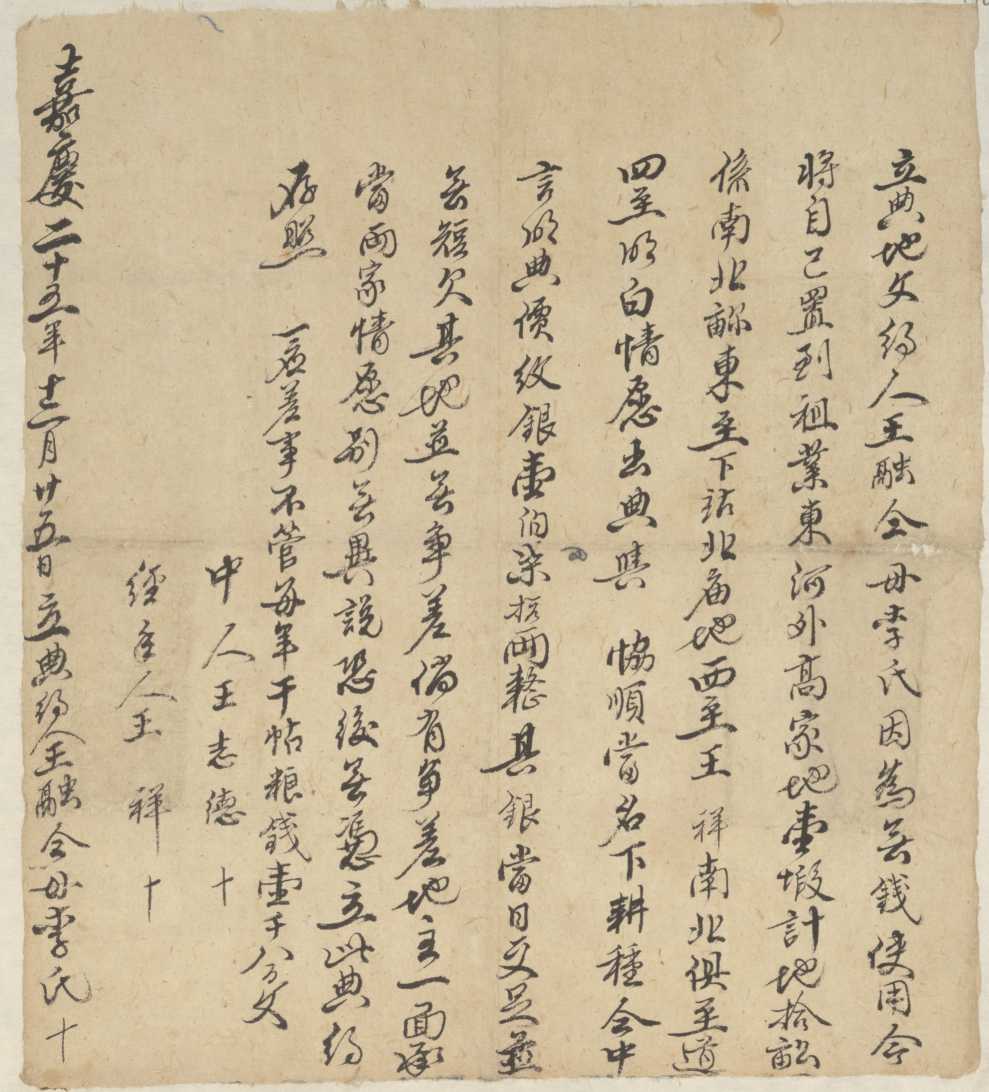 立典地文約人王融仝母李氏因為無錢使用今
將自己置到祖業東河外高家地壹塅計地拾畆
係南北畛東至下站北庙地西至王祥南北俱至道
四至明白情愿出典與 恊順當名下耕種仝中
言明典價紋銀壹伯柒拾兩整其銀當日交足並
無短欠其地並無爭差倘有爭差地主一面承
當兩家情愿別無異說恐後無憑立此典約
存照 一應差事不管每年干帖粮錢壹千八百文
中人王志德 十
經手人王 祥 十
嘉慶二十五年十二月廿五日立典約人王融仝母李氏 十